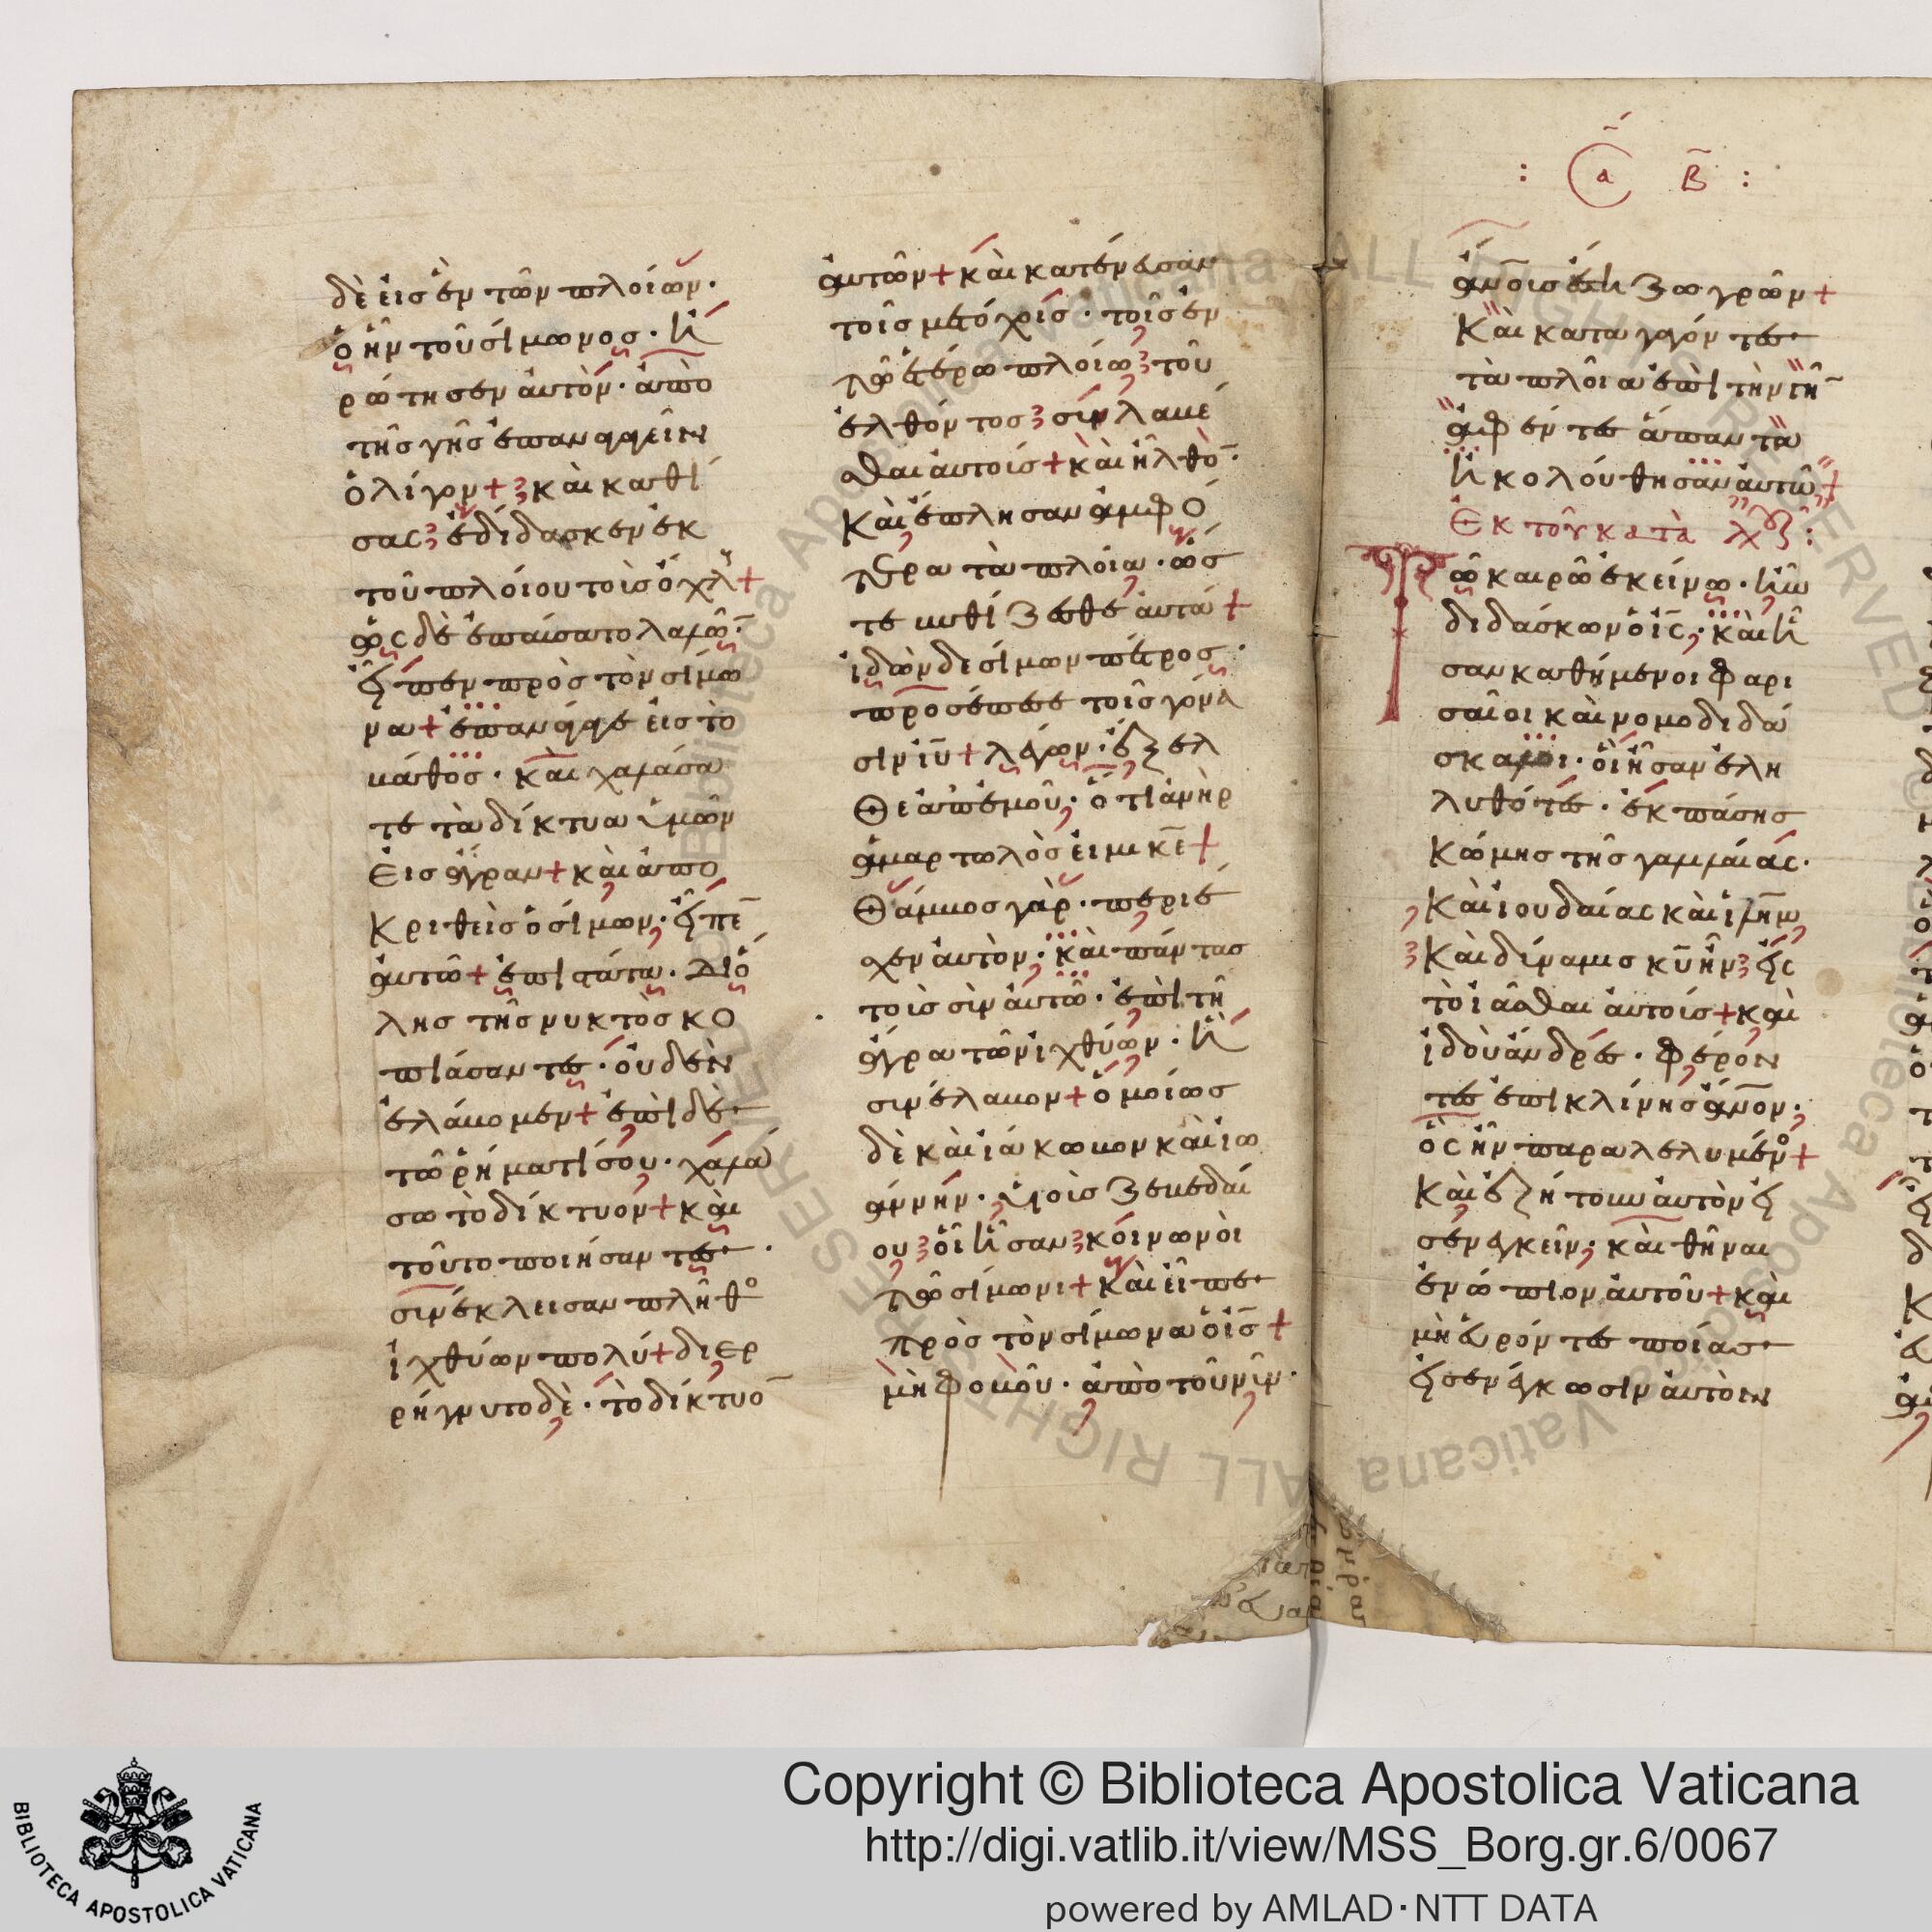 δὲ εἰς ἓν τῶν πλοίων·
ὃ ἦν τοῦ σίμωνος· ἠ
ρώτησεν αὐτὸν· ἀπὸ
τῆς γῆς ἐπαναγαγεῖν
ὀλίγον + καὶ καθί
σας ἐδίδασκεν ἐκ
τοῦ πλοίου τοὺς ὄχλ +
ὡς δὲ ἐπαύσατο λαλῶ̅·
εἶπεν πρὸς τὸν σίμω
να + ἐπανάγαγε εἰς τὸ
βάθος· καὶ χαλάσα
τε τὰ δίκτυα ὑμῶν
εἰς ἄγραν + καὶ ἀπο
κριθεὶς ὁ σίμων· εἶπε̅
αὐτῶ + ἐπιστάτα· δι ὅ
λης τῆς νυκτὸς κο
πιάσαντες· οὐδὲν
ἐλάβομεν + ἐπὶ δὲ
τῶ ῥήματί σου· χαλά
σω τὸ δίκτυον + καὶ
τοῦτο ποιήσαντες·
συνέκλεισαν πλῆθο
ἰχθύων πολύ + διερ
ρήγνυτο δὲ· τὸ δίκτυο̅
αὐτῶν + καὶ κατένευσαν
τοῖς μετόχοις· τοῖς ἐν
τῶ ἑτέρω πλοίω τοῦ
ἐλθόντος συλλαβέ
σθαι αὐτοῖς + καὶ ἦλθο̅·
καὶ ἔπλησαν ἀμφό
τερα τὰ πλοῖα· ὥσ
τε βυθίζεσθε αὐτὰ +
ἰδὼν δὲ σίμων πέτρος·
προσέπεσε τοῖς γόνα
σιν ι̅υ̅ + λέγων· ἔξελ
θε ἀπ' ἐμοῦ· ὅτι ἀνὴρ
ἁμαρτωλὸς εἰμι κ̅ε̅ +
θάμβος γὰρ· περιέ
σχεν αὐτὸν· καὶ πάντας
τοὺς σὺν αὐτῶ· ἐπὶ τῆ
ἄγρα τῶν ἰχθύων· ἧ
συνέλαβον + ὁμοίως
δὲ καὶ ἰάκωβον καὶ ἰω
άννην· υἱοὺς ζεβεδαί
ου οἳ ἦσαν κοινωνοὶ
τῶ σίμωνι + καὶ εἶπε
πρὸς τὸν σίμωνα ὁ ι̅ς̅ +
μὴ φοβοῦ· ἀπὸ τοῦ νῦν·
: α β :
α̅ν̅οις ἔση ζωγρῶν +
καὶ καταγαγόντες
τὰ πλοῖα ἐπὶ τὴν γῆ̅
ἀφέντες ἅπαντα
ἠκολούθησαν αὐτῶ +
ἐκ τοῦ κατὰ λ :
Τῶ καιρῶ ἐκείνω· ἦν
διδάσκων ὁ ι̅ς̅, καὶ ἦ
σαν καθήμενοι φαρι
σαῖοι καὶ νομοδιδά
σκαλοι· οἳ ἦσαν ἐλη
λυθότες· ἐκ πάσης
κώμης τῆς γαλιλαίας·
καὶ ἰουδαίας καὶ ι̅λ̅ημ,
καὶ δύναμις κ̅υ̅ ἦν εἰς
τὸ ἰᾶσθαι αὐτοὺς + καὶ
ἰδοὺ ἄνδρες· φέρον
τες ἐπὶ κλίνης α̅ν̅ον·
ὃς ἦν παραλελυμένο +
καὶ ἐζήτουν αὐτὸν εἰ
σενεγκεῖν· καὶ θῆναι
ἐνώπιον αὐτοῦ + καὶ
μὴ εὑρόντες ποίας
εἰσενέγκωσιν αὐτὸν
Copyright © Biblioteca Apostolica Vaticana
http://digi.vatlib.it/view/MSS_Borg.gr.6/0067
powered by AMLAD·NTT DATA
BIBLIOTECA APOSTOLICA VATICANA